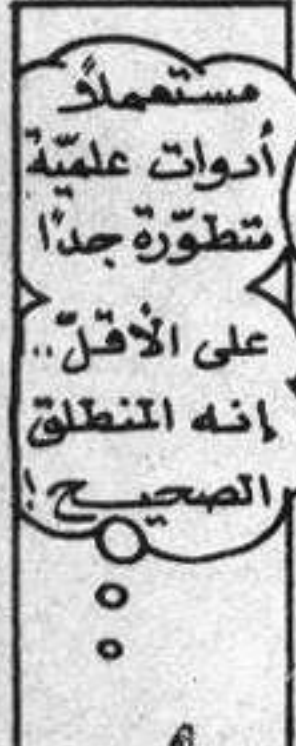 مستعملاً
أدوات علميّة
متطوّرة جدًا
على الأقلّ..
إنه المنطلق
الصحيح!